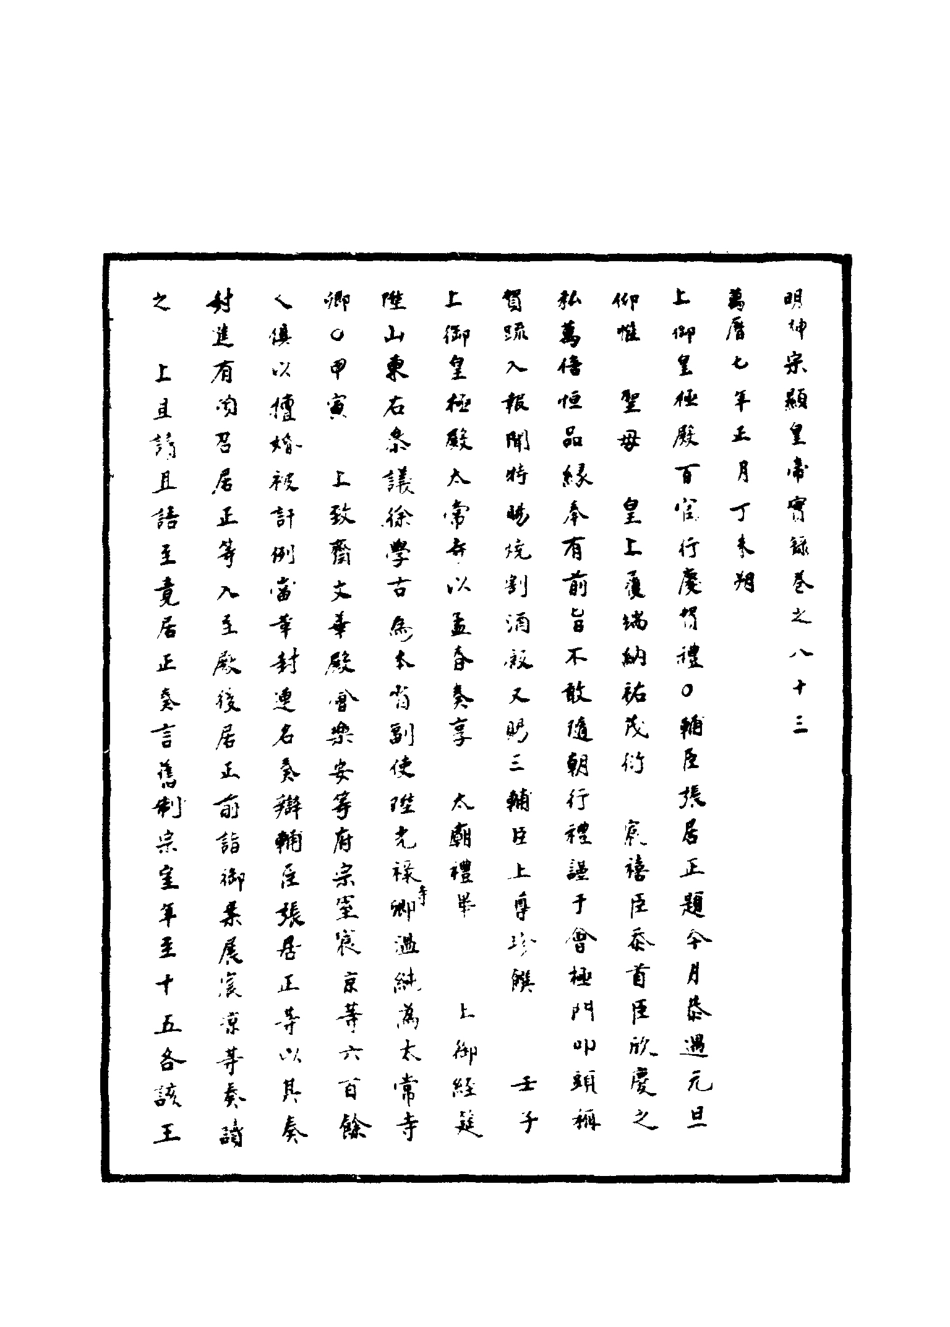 明神宗顯皇帝實錄卷之八十三
萬曆七年正月丁未朔
上御皇極殿百官行慶賀禮○輔臣張居正題今月恭遇元旦
仰惟 聖母 皇上履端納祐茂衍 禧臣忝首臣欣慶之
私萬倍恒品緣奉有前旨不敢隨朝行禮謹于會極門叩頭稱
賀疏入報聞特賜燒割酒飯又賜三輔臣上尊珍饌 壬子
上御皇極殿太常寺以孟春奏享 太廟禮畢 上御經筵
陞山東右叅議徐學古為本省副使陞光祿寺卿溫純為太常寺
卿○甲寅 上致齋文華殿會樂安等府宗室宸京等六百餘
人俱以擅婚被訐例當革封連名奏辯輔臣張居正等以其奏
封進有聞召居正等入至殿後居正前詣御案展宸凉等奏讀
之 上且讀且語至竟居正奏言舊制宗室年至十五各該王